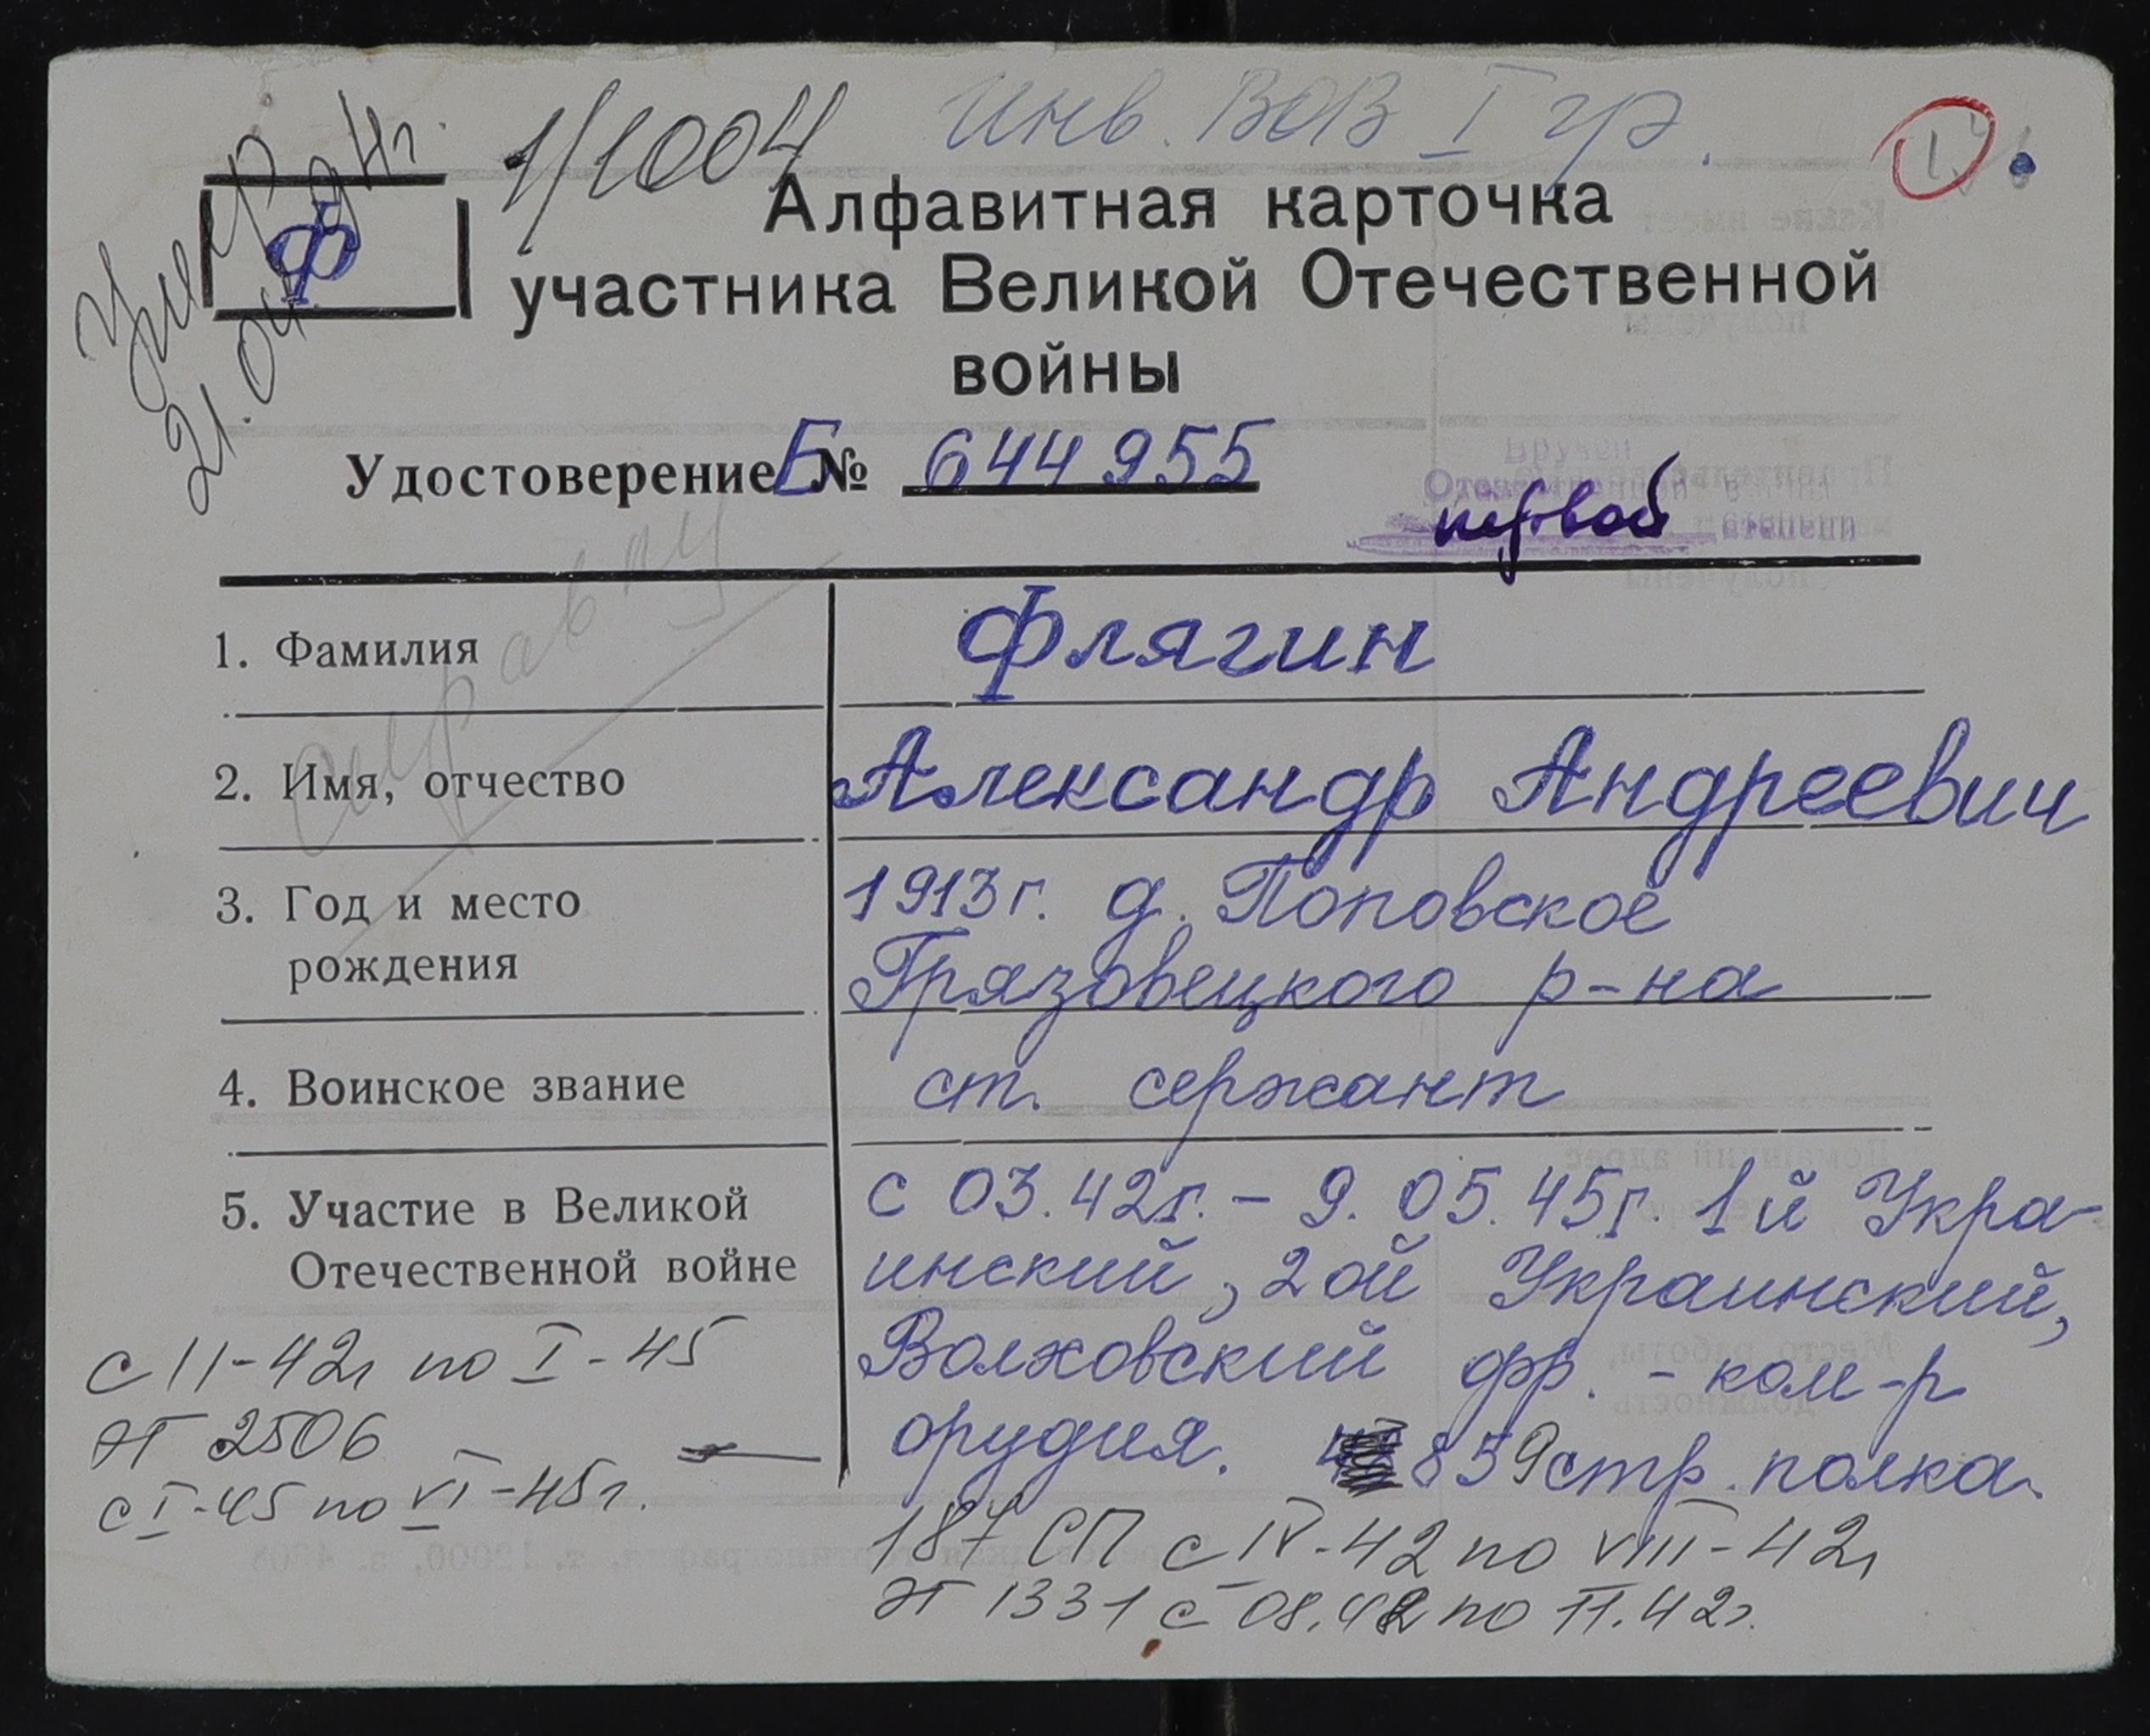 1/1004 Инв. ВОВ I гр.
Умер
21.04.94г.
Ф
Алфавитная карточка
участника Великой Отечественной
войны
Удостоверение Б № 644955
Вручен
Отечественной
первой
степени
справку
1. Фамилия
Флягин
2. Имя, отчество
Александр Андреевич
3. Год и место
рождения
1913 г. д. Поповское
Грязовецкого р-на
4. Воинское звание
ст. сержант
5. Участие в Великой
Отечественной войне
с 03.42г. – 9.05.45г. 1й Укра-
инский, 2ой Украинский,
Волховский фр. - ком-р
орудия. 859 стр. полка.
с 11-42г по I-45
ЭГ 2506
с I-45 по VI-45г.
187 СП с IV-42 по VIII-42г
ЭГ 1331 с 08.42 по 11.42г.